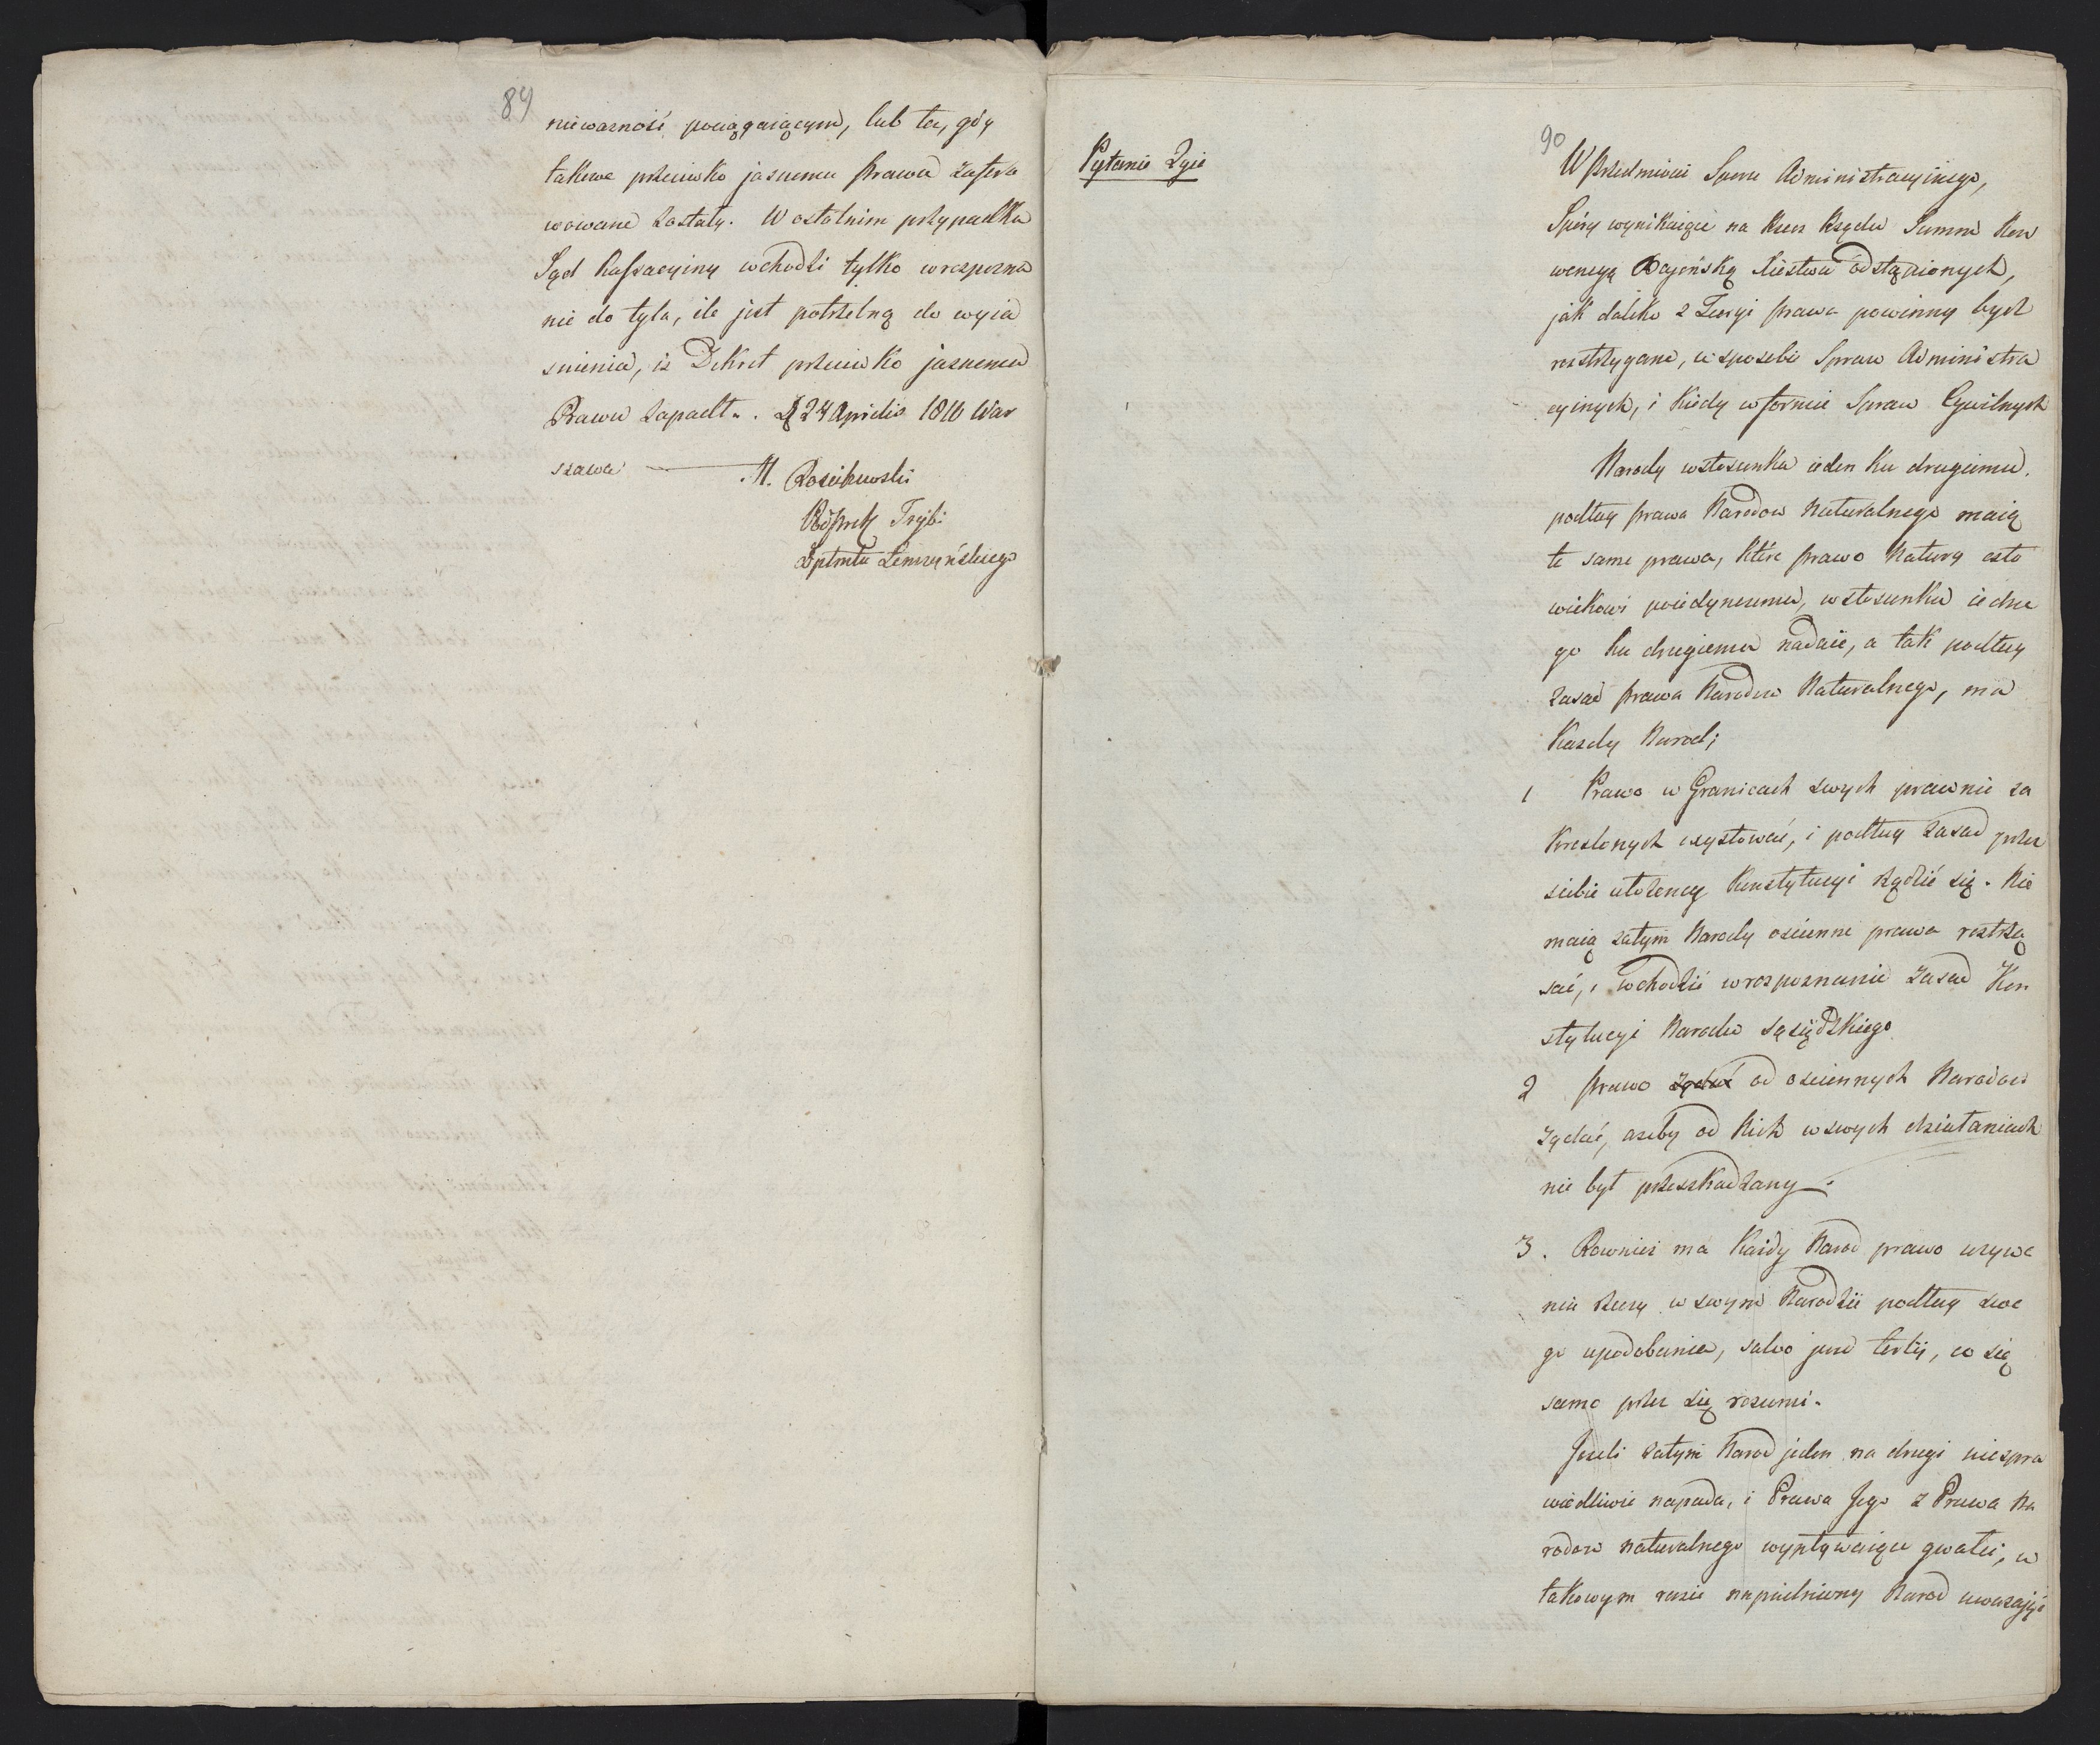 89
nieważność pociągaiącym, lub te, gdy
takowe przeciwko jasnemu Prawu zastoso
wowane zostały. W ostatnim przypadku
Sąd Kassacyiny wchodzi tylko w rozpozna
nie do tyla, ile jest potrzebną do wyia
snienia, iz Dekret przeciwko jasnemu
Prawu zapadł. d 24 Aprilis 1810 War
szawa — M.
Trybi
Dptmtu Łomżyńskiego
90
Pytanie 2gie
W Przedmiocie Sporu Administracyinego,
Spory wynikaiące na Rzecz Rządu Summ Kon
wencyą Bajońską Xięstwu odstąpionych,
jak daleko z Teoryi prawa powinny bydz
rozstrzygane, w sposobie Spraw Administra
cyinych, i kiedy w formie Spraw Cywilnych
Narody w stosunku ieden ku drugiemu
podług prawa Narodow Naturalnego maią
te same prawa, które prawo Natury czło
wiekowi poiedynczemu, w stosunku iedne
go ku drugiemu nadaie, a tak podług
zasad prawa Narodow Naturalnego, ma
Kazdy Narod;
1 Prawo w Granicach swych prawnie za
kreslonych exystować, i podług zasad przez
siebie ułożoney Konstytucyi rządzić się. Nie
maią zatym Narody oscienne prawa roztrzą
sać, i wchodzić w rozpoznanie zasad Kon
stytucyi Narodu sąsiędzkiego
2 Prawo żądać od osciennych Narodow
żądać, azeby od Nich w swych działaniach
nie był przeszkadzany.
3. Rownież ma Każdy Narod prawo uzywa
nia Rzeczy w swym Narodzie podług swe
go upodobania, salvo jure tertii, co się
samo przez się rozumi.
Jezeli zatym Narod jeden na drugi niespra
wiedliwie napada, i Prawa Jego z Prawa Na
rodow naturalnego wypływaiące gwałci, w
takowym razie napadniony Narod uważaiąc